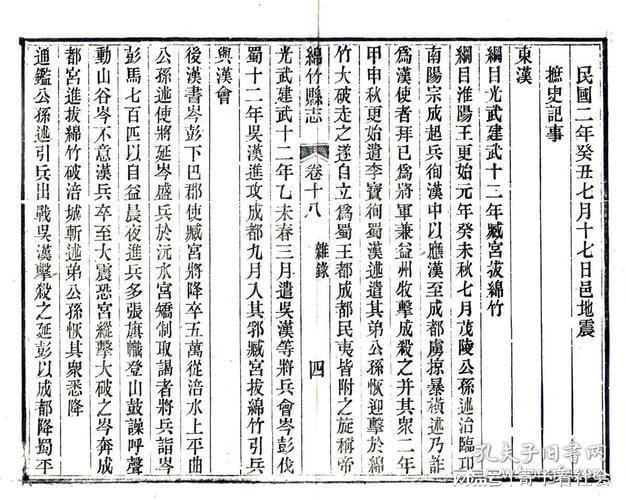 民國二年癸丑七月十七日邑地震
摭史記事
東漢
綱目光武建武十三年臧宮拔綿竹
綱目淮陽王更始元年癸未秋七月茂陵公孫述治臨邛
南陽宗成起兵徇漢中以應漢至成都虜掠暴橫述乃詐
爲漢使者拜已爲將軍兼益州牧擊成殺之并其衆二年
甲申秋更始遣李寶徇蜀漢述遣其弟公孫恢迎擊於綿
竹大破走之遂自立爲蜀王都成都民夷皆附之旋稱帝
綿竹縣志
卷十八
雜錄
四
光武建武十二年乙未春三月遣吳漢等將兵會岑彭伐
蜀十二年吳漢進攻成都九月入其郛臧宮拔綿竹引兵
與漢會
後漢書岑彭下巴郡使臧宮將降卒五萬從涪水上平曲
公孫述使將延岑盛兵於沅水宮矯制取謁者將兵詣岑
彭馬七百匹以自益晨夜進兵多張旗幟登山鼓譟呼聲
動山谷岑不意漢兵卒至大震恐宮縱擊大破之岑奔成
都宮進拔綿竹破涪城斬述弟公孫恢其衆悉降
通鑑公孫述引兵出戰吳漢擊殺之延彭以成都降蜀平
孔夫子旧书网